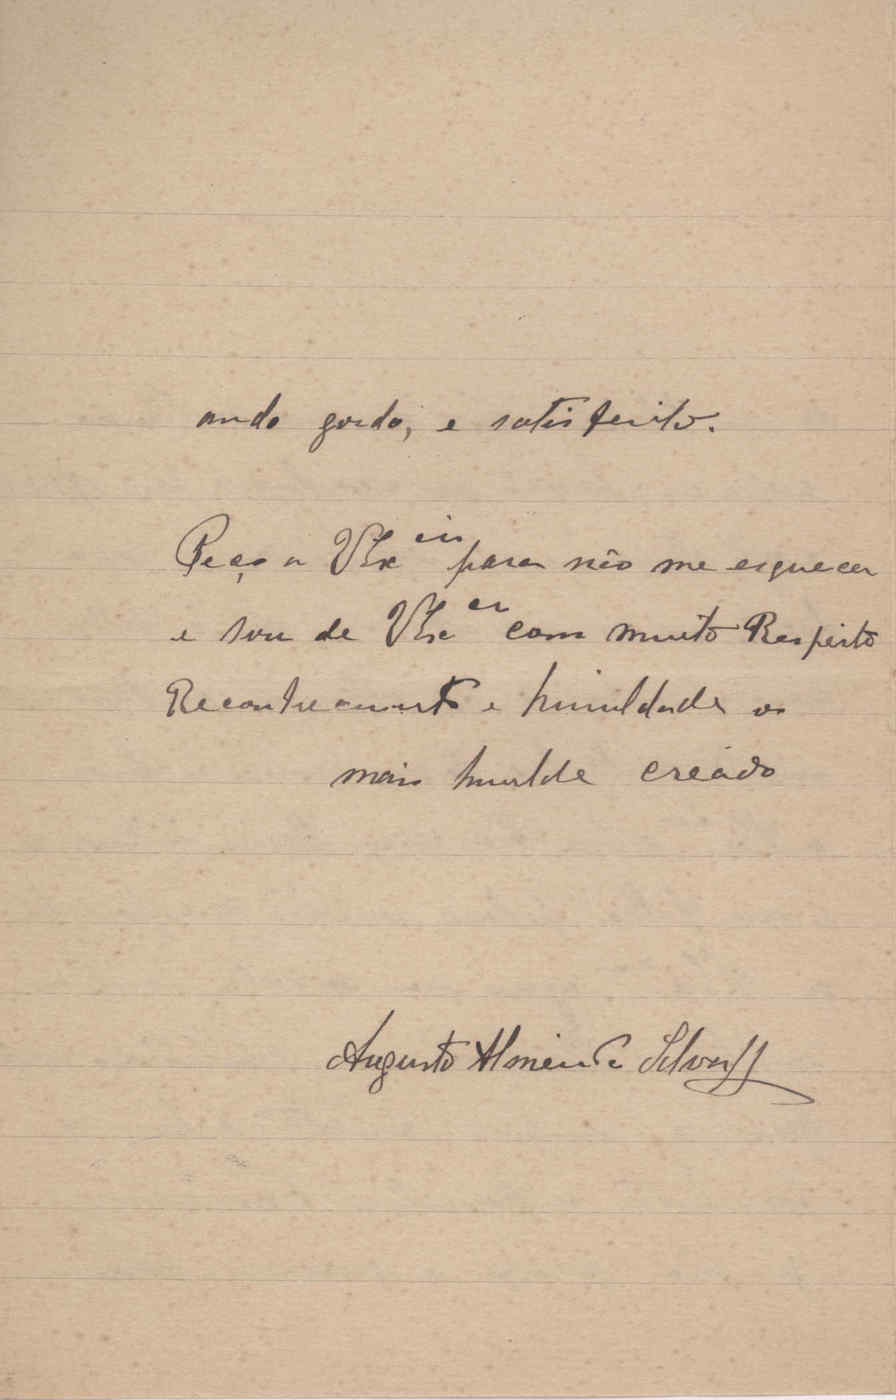 ando gordo, e satisfeito.
Peço a VExcia para não me esquecer
e sou de VExcia com muito Respeito
Reconhecimento e humildade o
mais humilde creado
Augusto Almeida Silva